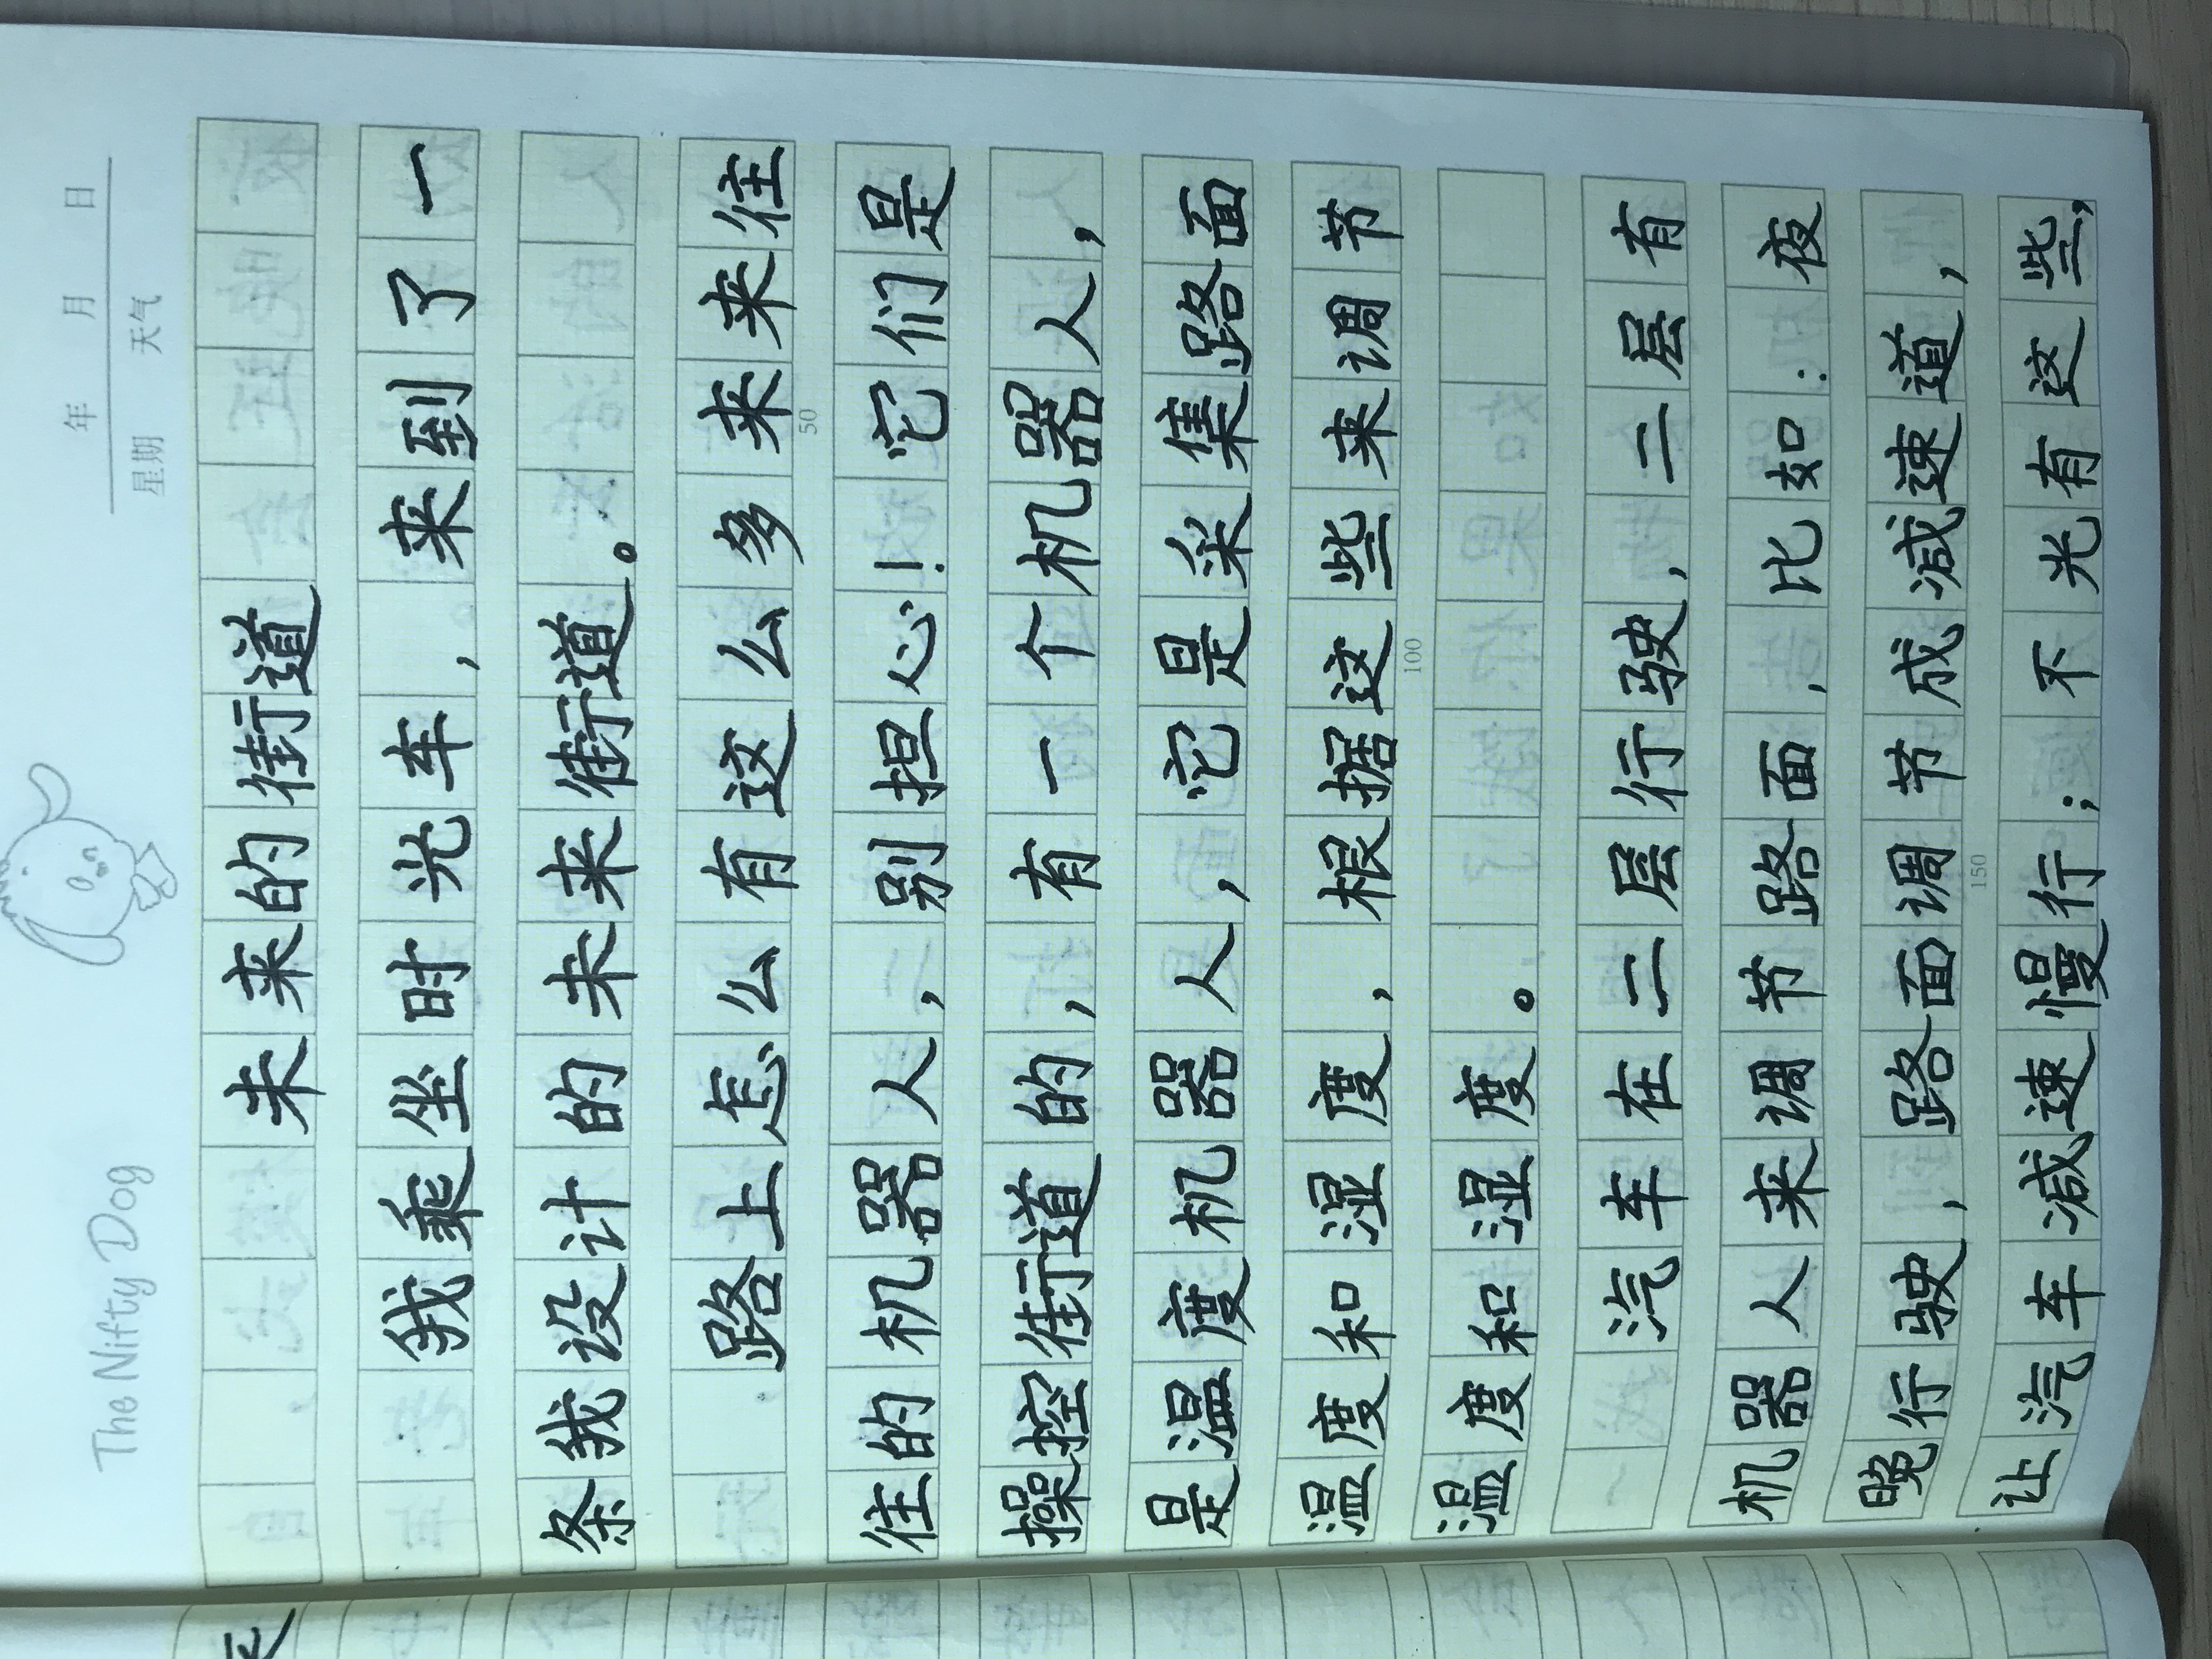 The Nifty Dog
年 月 日
星期 天气
未来的街道
我乘坐时光车，来到了一
条我设计的未来街道。
路上怎么有这么多来来往
50
往的机器人，别担心！它们是
操控街道的，有一个机器人，
是温度机器人，它是采集路面
温度和湿度，根据这些来调节
100
温度和湿度。
汽车在二层行驶，二层有
机器人来调节路面，比如：夜
晚行驶，路面调节成减速道，
150
让汽车减速慢行；不光有这些，